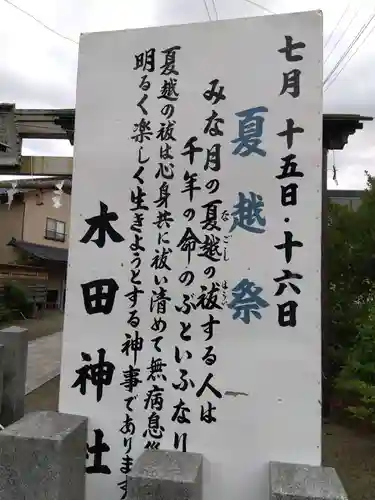 七月十五日・十六日
夏越祭
みな月の夏越の祓する人は
なごし
はらう
千年の命のぶといふなり
夏越の祓は心身共に祓い清めて無病息
明るく楽しく生きようとする神事であります
木田神社